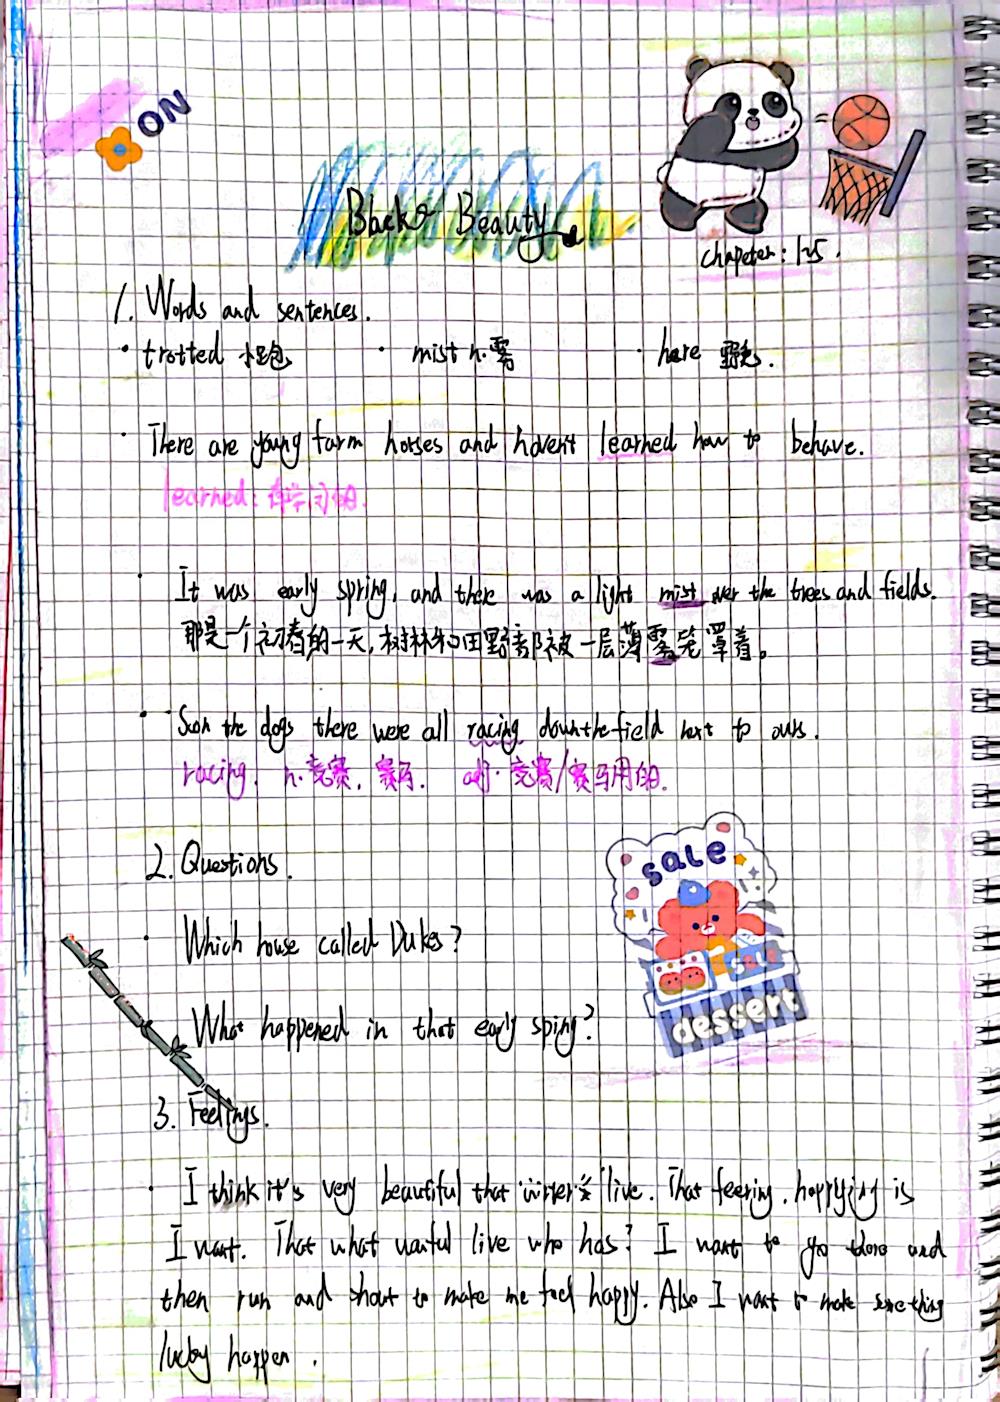 ON
Black Beauty
chapeter: 1-25.
1. Words and sentences.
· trotted 小跑 · mist n.雾 · hare 野兔.
· There are young farm horses and haven't learned how to behave.
learned: 有学问的.
· It was early spring, and there was a light mist over the trees and fields.
那是一个初春的一天,树林和田野都被一层薄雾笼罩着。
· Soon the dogs there were all racing down the field next to ours.
racing. n.竞赛, 赛马. adj. 竞赛/赛马用的.
2. Questions.
sale
· Which house called Dukes?
SALE
dessert
What happened in that early sping?
3. Feelings.
· I think it's very beautiful that writer's live. That feering, happying is
I want. That what live who has? I want to go there and
then run and shout to make me feel happy. Also I want to make something
lucky happen.